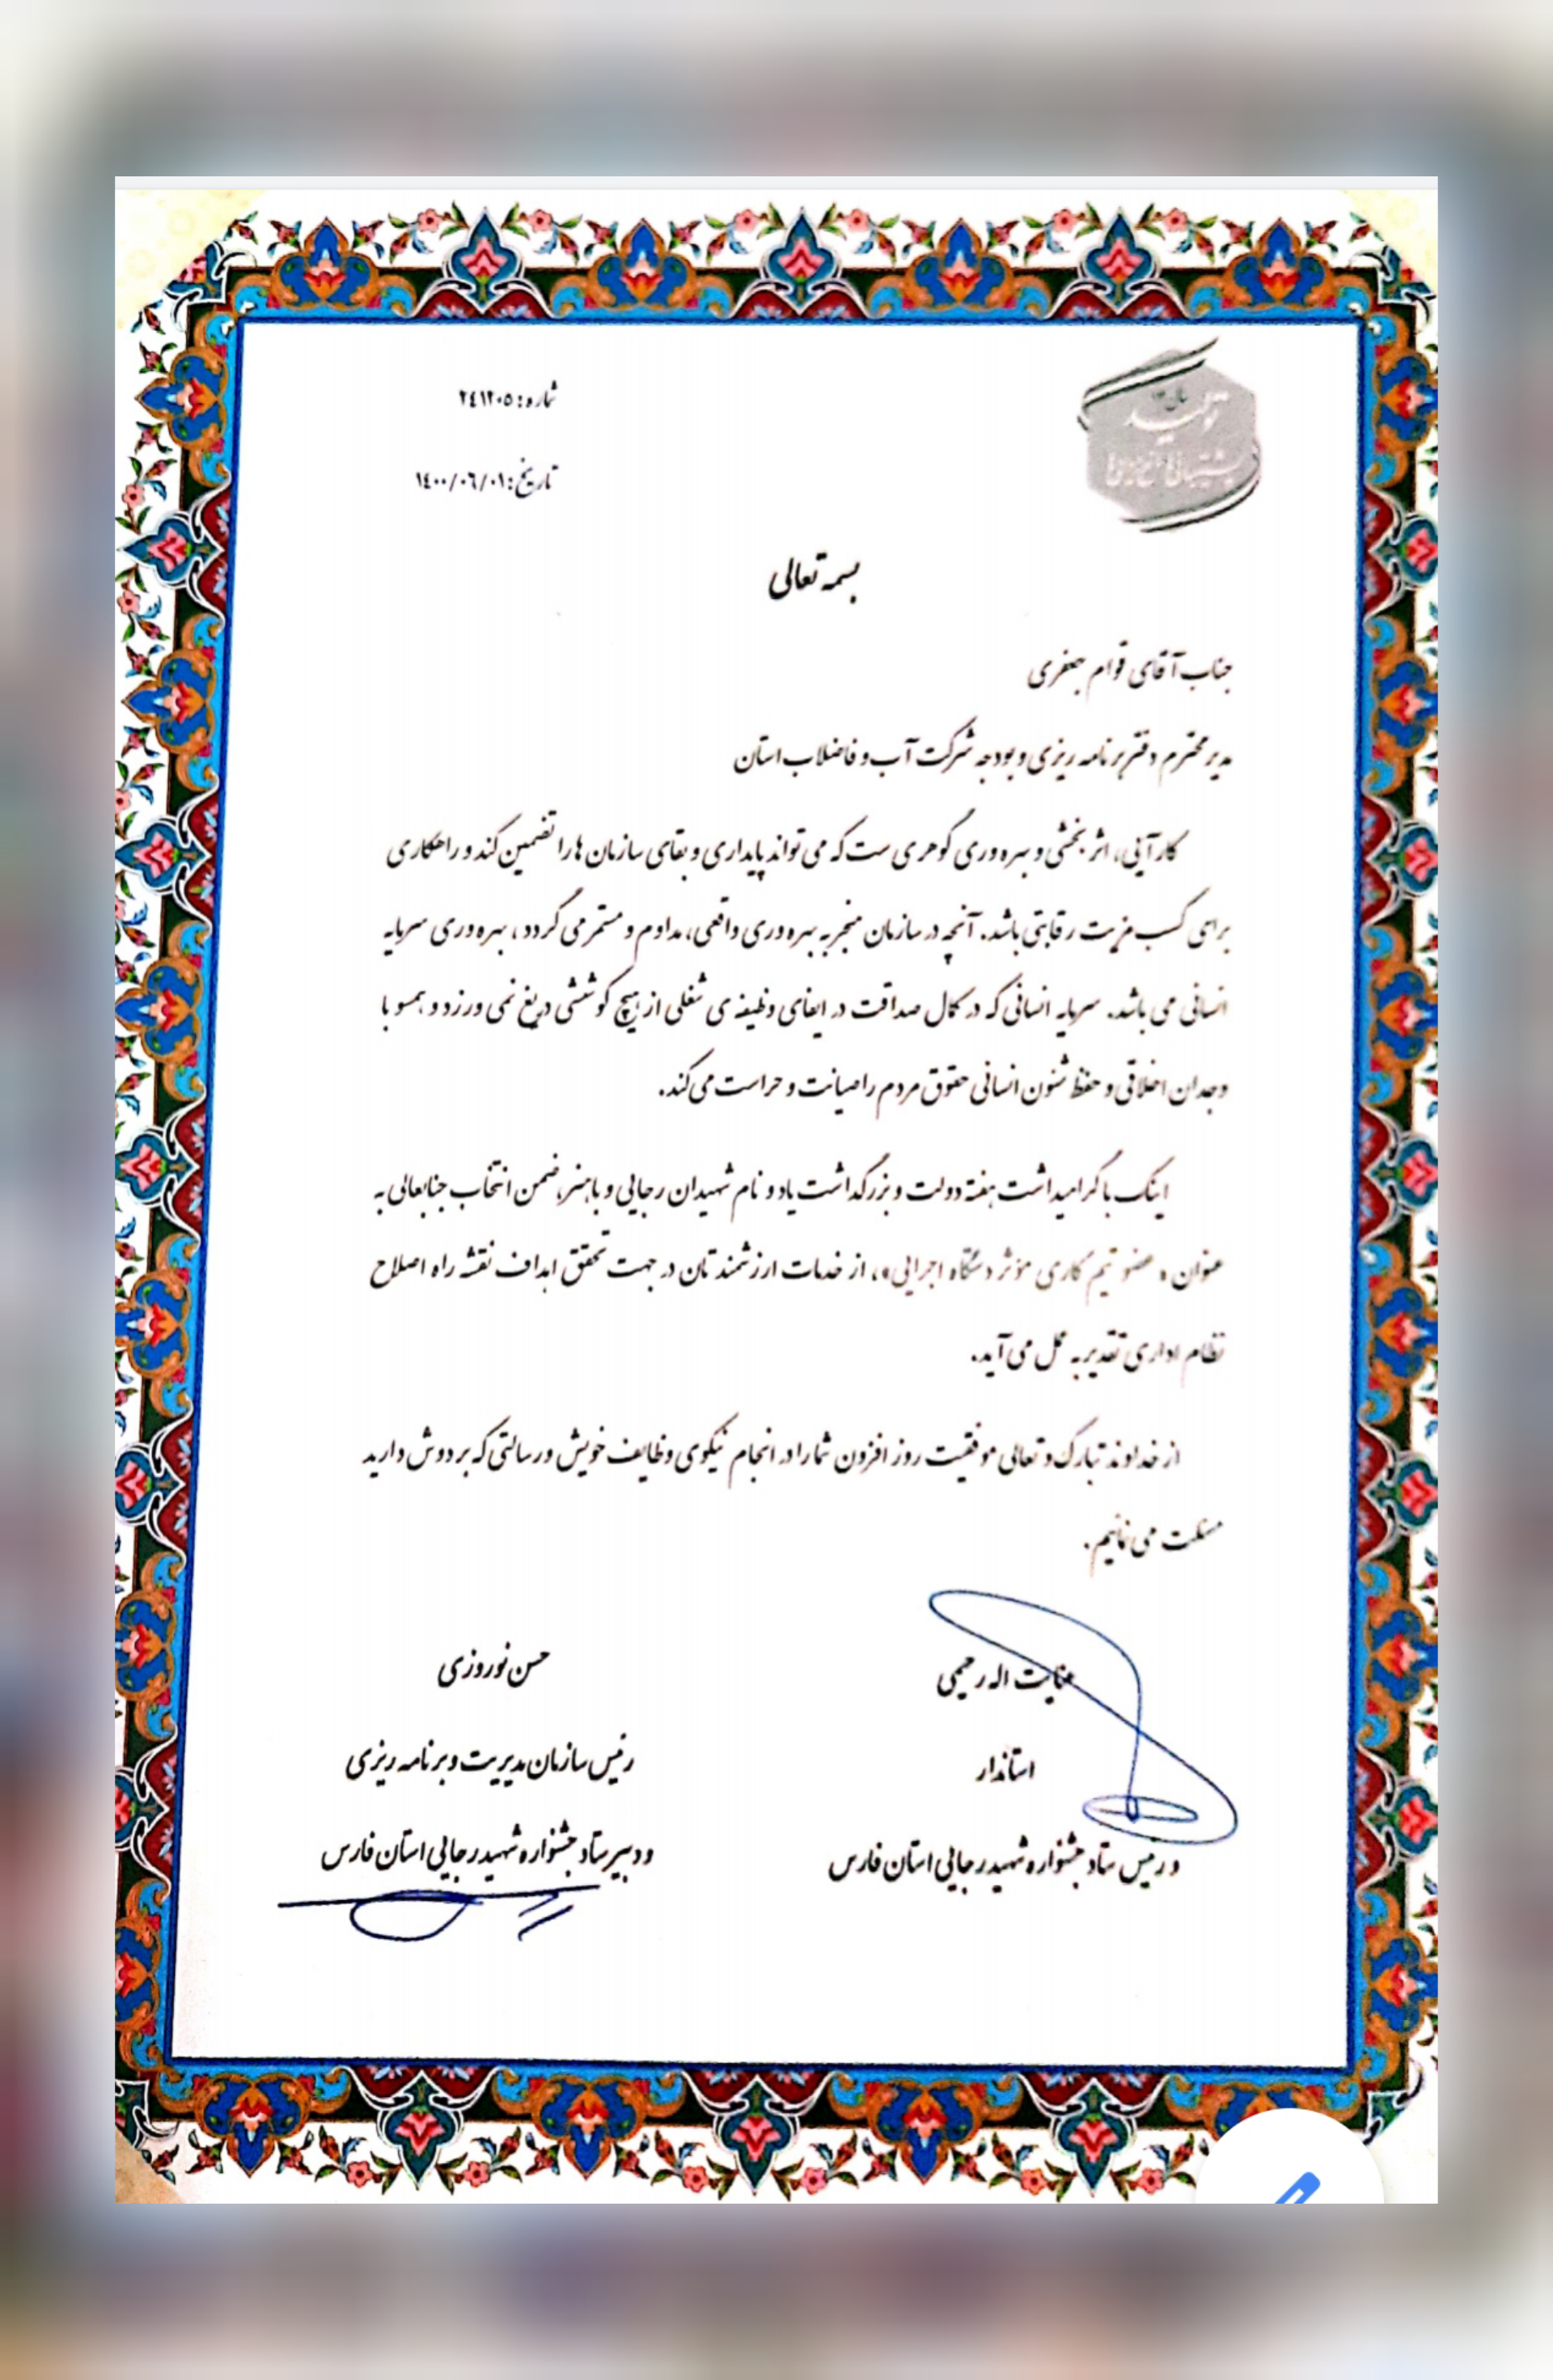 شماره: ۲۴۱۲۰۵
تولید
تاریخ: ۱۴۰۰/۰۶/۰۱
بسمه تعالی
جناب آقای قوام جعفری
مدیر محترم دفتر برنامه ریزی و بودجه شرکت آب و فاضلاب استان
کارآئی، اثربخشی و بهره وری گوهری ست که می تواند پایداری و بقای سازمان ها را تضمین کند و راهکاری
برای کسب مزیت رقابتی باشد. آنچه در سازمان منجر به بهره وری واقعی، مداوم و مستمر می گردد، بهره وری سرمایه
انسانی می باشد. سرمایه انسانی که در کمال صداقت در ایفای وظیفه ی شغلی از هیچ کوششی دریغ نمی ورزد و همسو با
وجدان اخلاقی و حفظ شئون انسانی حقوق مردم را صیانت و حراست می کند.
اینک با گرامیداشت هفته دولت و بزرگداشت یاد و نام شهیدان رجایی و باهنر، ضمن انتخاب جنابعالی به
عنوان « عضو تیم کاری مؤثر دستگاه اجرایی»، از خدمات ارزشمندتان در جهت تحقق اهداف نقشه راه اصلاح
نظام اداری تقدیر به عمل می آید.
از خداوند تبارک و تعالی موفقیت روز افزون شما را در انجام نیکوی وظایف خویش و رسالتی که بر دوش دارید
مسئلت می نمائیم.
عنایت اله رحیمی
استاندار
و رئیس ستاد جشنواره شهید رجایی استان فارس
حسن نوروزی
رئیس سازمان مدیریت و برنامه ریزی
و دبیر ستاد جشنواره شهید رجایی استان فارس